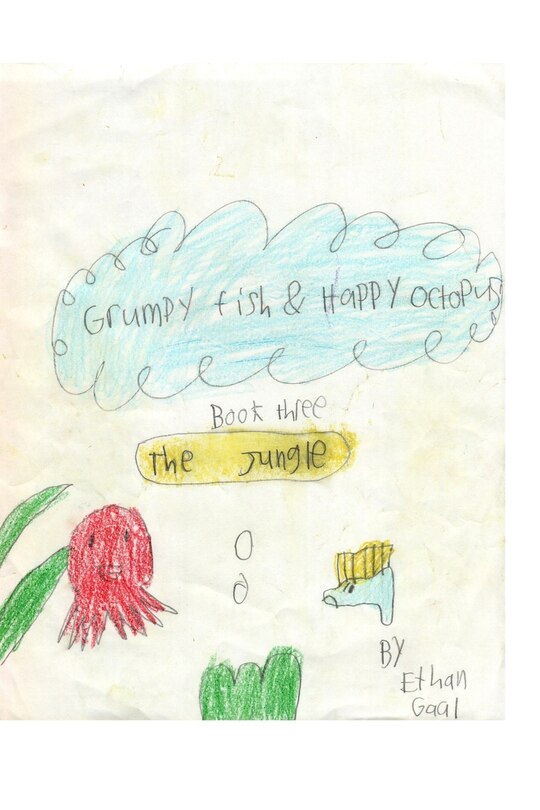 Grumpy fish & Happy octopus
Book three
The Jungle
BY
Ethan
Gaal